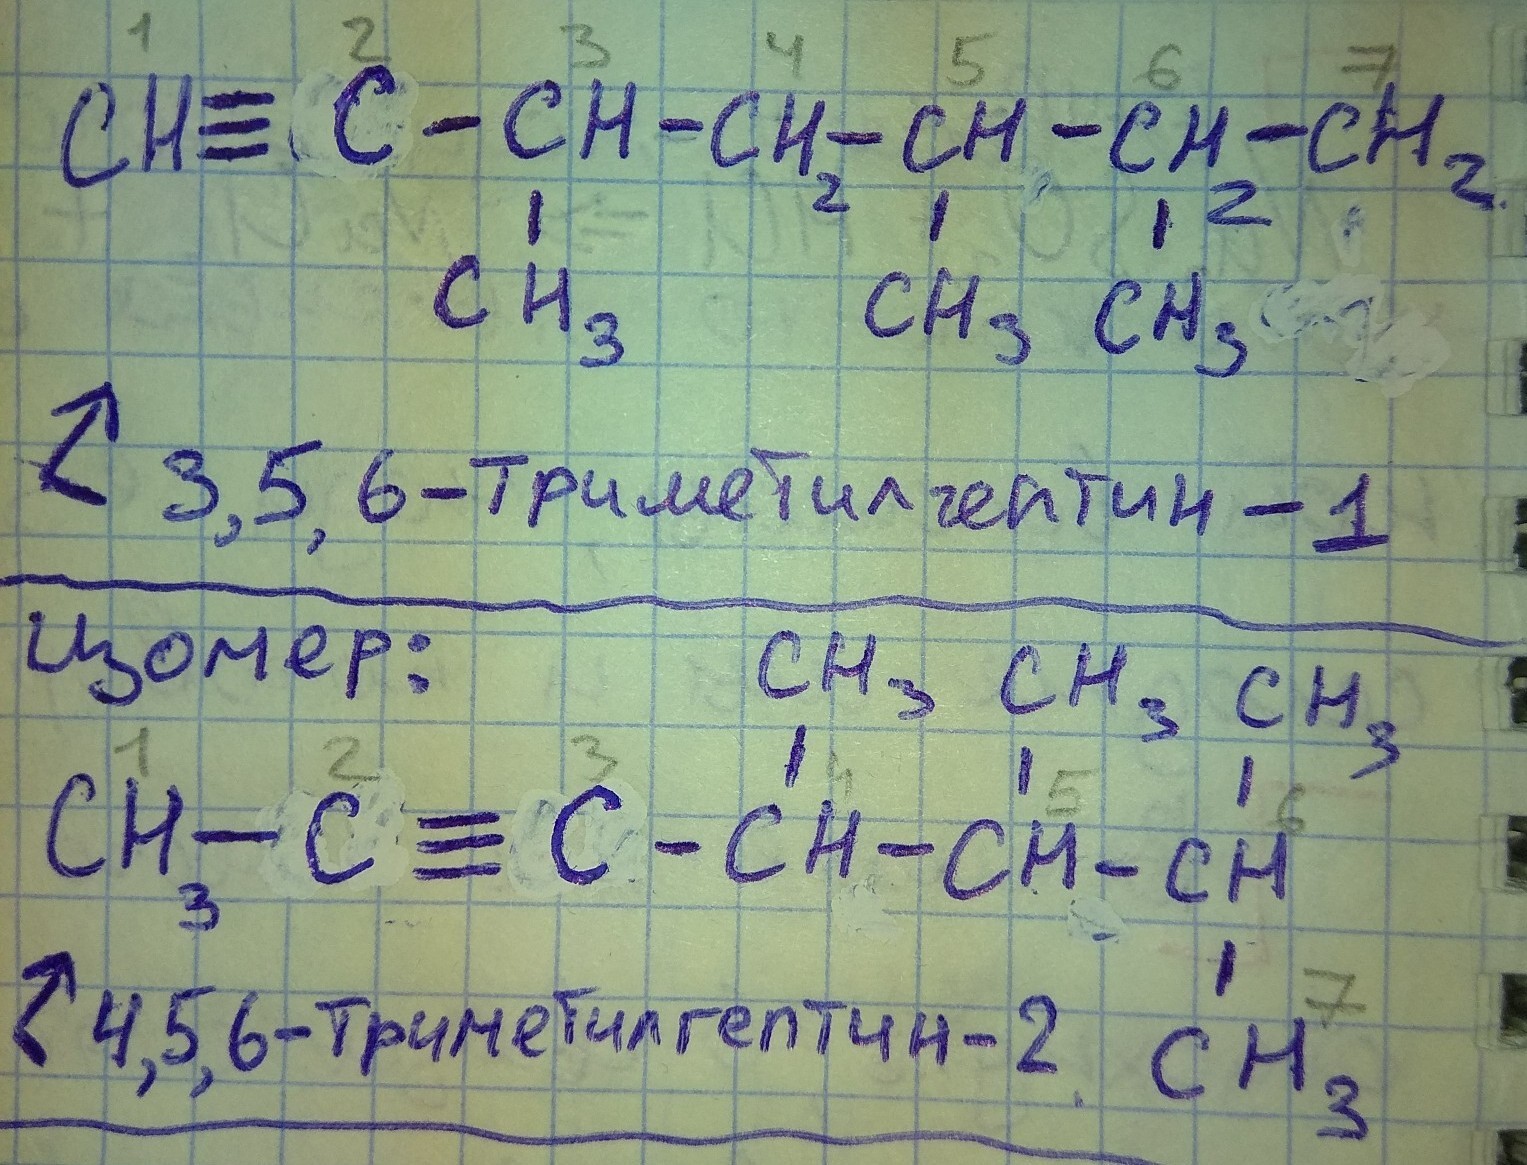 1 2 3 4 5 6 7
CH≡C-CH-CH2-CH-CH2-CH2
CH3 CH3 CH3
3,5,6-триметилгептин-1
изомер:
CH3 CH3 CH3
1 2 3 4 5 6
CH3-C≡C-CH-CH-CH
7
4,5,6-триметилгептин-2 CH3